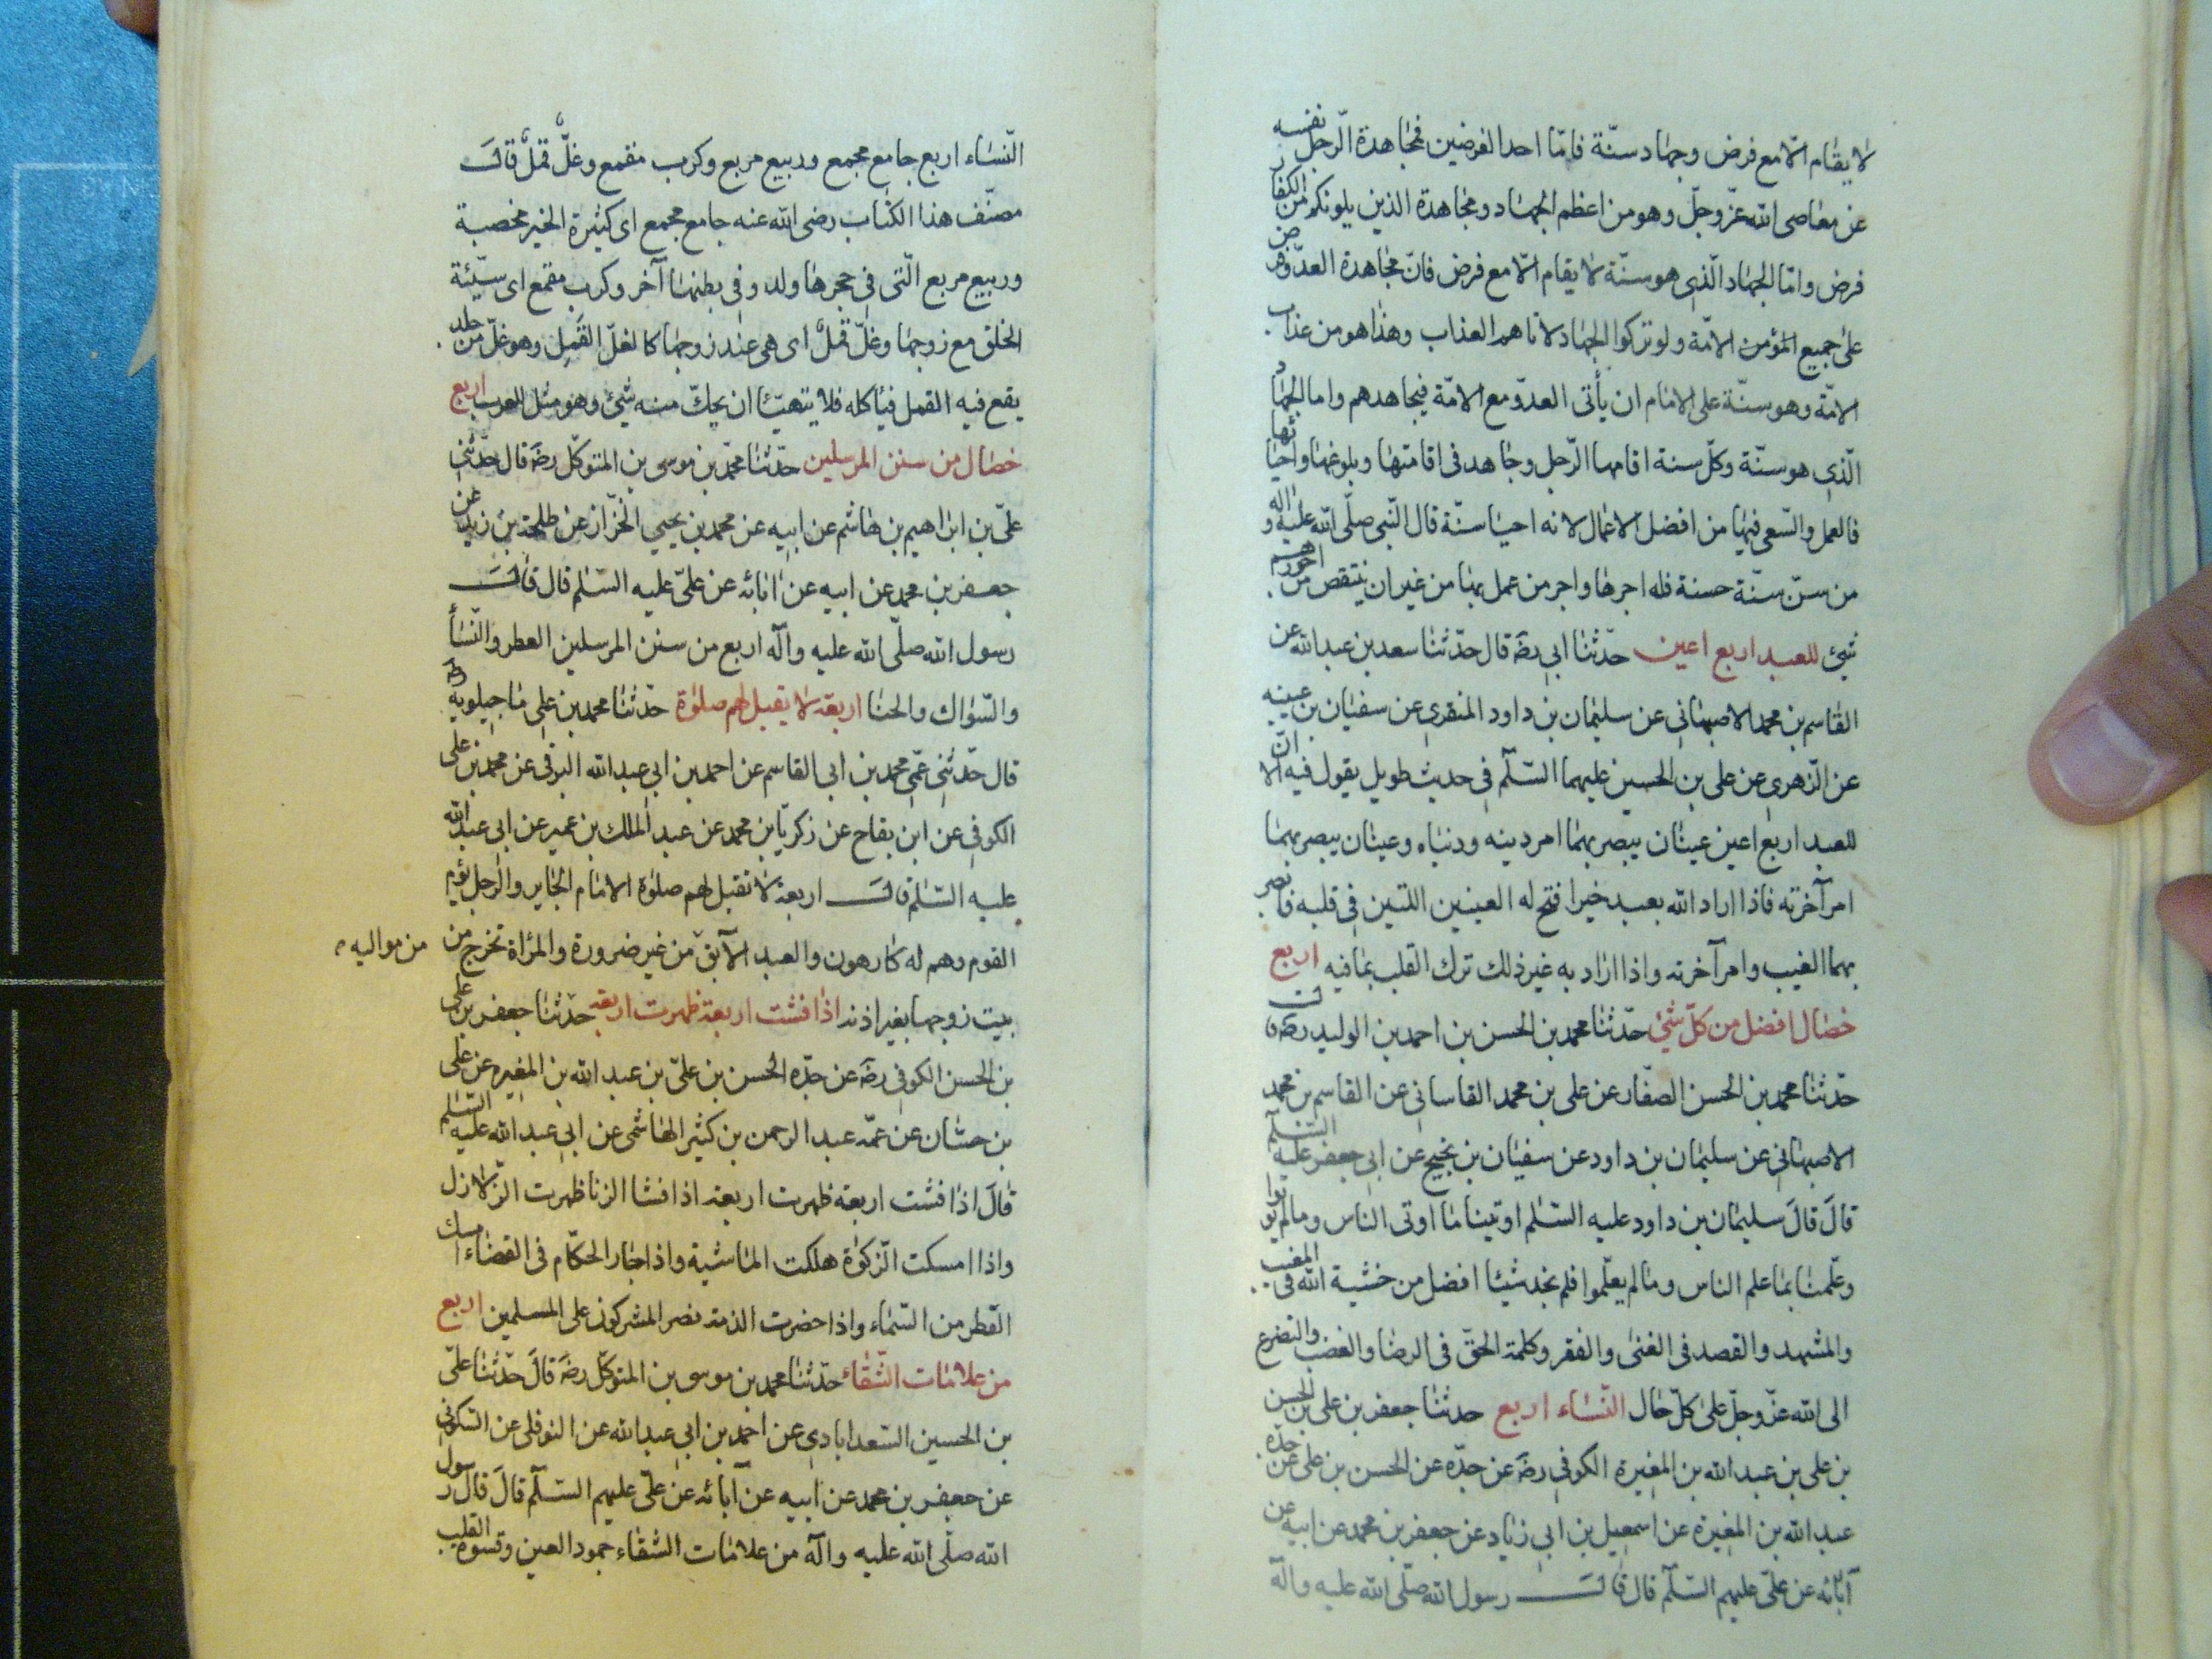 لا يقام الّا مع فرض وجهاد سنّة فامّا احد الفرضين فمجاهدة الرّجل نفسه
عن معاصى الله عزّ وجلّ وهو من اعظم الجهاد ومجاهدة الذين يلونكم من الكفار
فرض وامّا الجهاد الّذى هو سنّة لا يقام الّا مع فرض فانّ مجاهدة العدوّ فرض
على جميع الامّة ولو تركوا الجهاد لاتاهم العذاب وهذا هو من عذاب
الامّة وهو سنّة على الامام ان يأتى العدوّ مع الامّة فيجاهدهم واما الجهاد
الّذى هو سنّة وكلّ سنة اقامها الرّجل وجاهد فى اقامتها وبلوغها واحيائها
فالعمل والسّعى فيها من افضل الاعمال لانه احيا سنّة قال النّبى صلّى الله عليه واله
من سنّ سنّة حسنة فله اجرها واجر من عمل بها من غير ان ينتقص من اجورهم
شئ للعبد اربع اعين حدّثنا ابى رضه قال حدّثنا سعد بن عبد الله عن
القاسم بن محمد الاصبهانى عن سليمان بن داود المنقرى عن سفيان بن عيينه
عن الزّهرى عن على بن الحسين عليهما السّلم فى حديث طويل يقول فيه الا انّ
للعبد اربع اعين عينان يبصر بهما امر دينه ودنياه وعينان يبصر بهما
امر آخرته فاذا اراد الله بعبد خيرا فتح له العينين اللتين فى قلبه فابصر
بهما الغيب وامر آخرته واذا اراد به غير ذلك ترك القلب بما فيه اربع
خصال افضل من كلّ شئ حدّثنا محمد بن الحسن بن احمد بن الوليد رضه قال
حدّثنا محمد بن الحسن الصفّار عن على بن محمد القاسانى عن القاسم بن محمد
الاصبهانى عن سليمان بن داود عن سفيان بن نجيح عن ابى جعفر عليه السّلم
قال قال سليمان بن داود عليه السّلم اوتينا ما اوتى الناس وما لم يؤتوا
وعلّمنا بما علم الناس وما لم يعلّموا فلم نجد شيئا افضل من خشية الله فى المغيب
والمشهد والقصد فى الغنى والفقر وكلمة الحقّ فى الرضا والغضب والتضرع
الى الله عزّ وجلّ على كلّ حال النّساء اربع حدثنا جعفر بن على بن الحسن
بن على بن عبد الله بن المغيرة الكوفى رضه عن جدّه عن الحسن بن على عن جدّه
عبد الله بن المغيرة عن اسمعيل بن ابى زياد عن جعفر بن محمد عن ابيه عن
آبائه عن علىّ عليهم السّلم قال قال رسول الله صلّى الله عليه واله
النّساء اربع جامع مجمع وربيع مربع وكرب مقمع وغلّ قمل قال
مصنّف هذا الكتاب رضى الله عنه جامع مجمع اى كثيرة الخير مخصبة
وربيع مربع الّتى فى حجرها ولد وفى بطنها آخر وكرب مقمع اى سيّئة
الخلق مع زوجها وغلّ قمل اى هى عند زوجها كالغلّ القمل وهو غلّ من جلد
يقع فيه القمل فيأكله فلا يتهيّأ ان يحكّ منه شئ وهو مثل للعرب اربع
خصال من سنن المرسلين حدّثنا محمّد بن موسى بن المتوكّل رضه قال حدّثنى
علىّ بن ابراهيم بن هاشم عن ابيه عن محمد بن يحيى الخزّاز عن طلحة بن زيد عن
جعفر بن محمد عن ابيه عن ابائه عن علىّ عليه السّلم قال قال
رسول الله صلّى الله عليه واله اربع من سنن المرسلين العطر والنّسأ
والسّواك والحنا اربعة لا يقبل لهم صلوة حدّثنا محمد بن على ماجيلويه رضه
قال حدّثنى عمّى محمد بن ابى القاسم عن احمد بن ابى عبد الله البرقى عن محمد بن على
الكوفى عن ابن بقاح عن زكريّا بن محمد عن عبد الملك بن عمير عن ابى عبد الله
عليه السّلم قال اربعة لا تقبل لهم صلوة الامام الجاير والرجل يؤم
القوم وهم له كارهون والعبد الآبق من غير ضرورة والمرأة تخرج من
من مواليه
بيت زوجها بغير اذنه اذا فشت اربعة ظهرت اربعة حدّثنا جعفر بن على
بن الحسن الكوفى رضه عن جدّه الحسن بن علىّ بن عبد الله بن المغيره عن على
بن حسّان عن عمّه عبد الرحمن بن كثير الهاشمى عن ابى عبد الله عليه السّلم
قال اذا فشت اربعة ظهرت اربعة اذا فشا الزنا ظهرت الزّلازل
واذا امسكت الزّكوة هلكت الماشية واذا جار الحكّام فى القضاء امسك
القطر من السّماء واذا خضرت الذمة نصر المشركون على المسلمين اربع
من علامات الشّقاء حدّثنا محمد بن موسى بن المتوكّل رضه قال حدّثنا علىّ
بن الحسين السّعدابادى عن احمد بن ابى عبد الله عن النوفلى عن السّكونى
عن جعفر بن محمد عن ابيه عن آبائه عن علىّ عليهم السّلم قال قال رسول
الله صلّى الله عليه واله من علامات الشقاء جمود العين وقسوة القلب